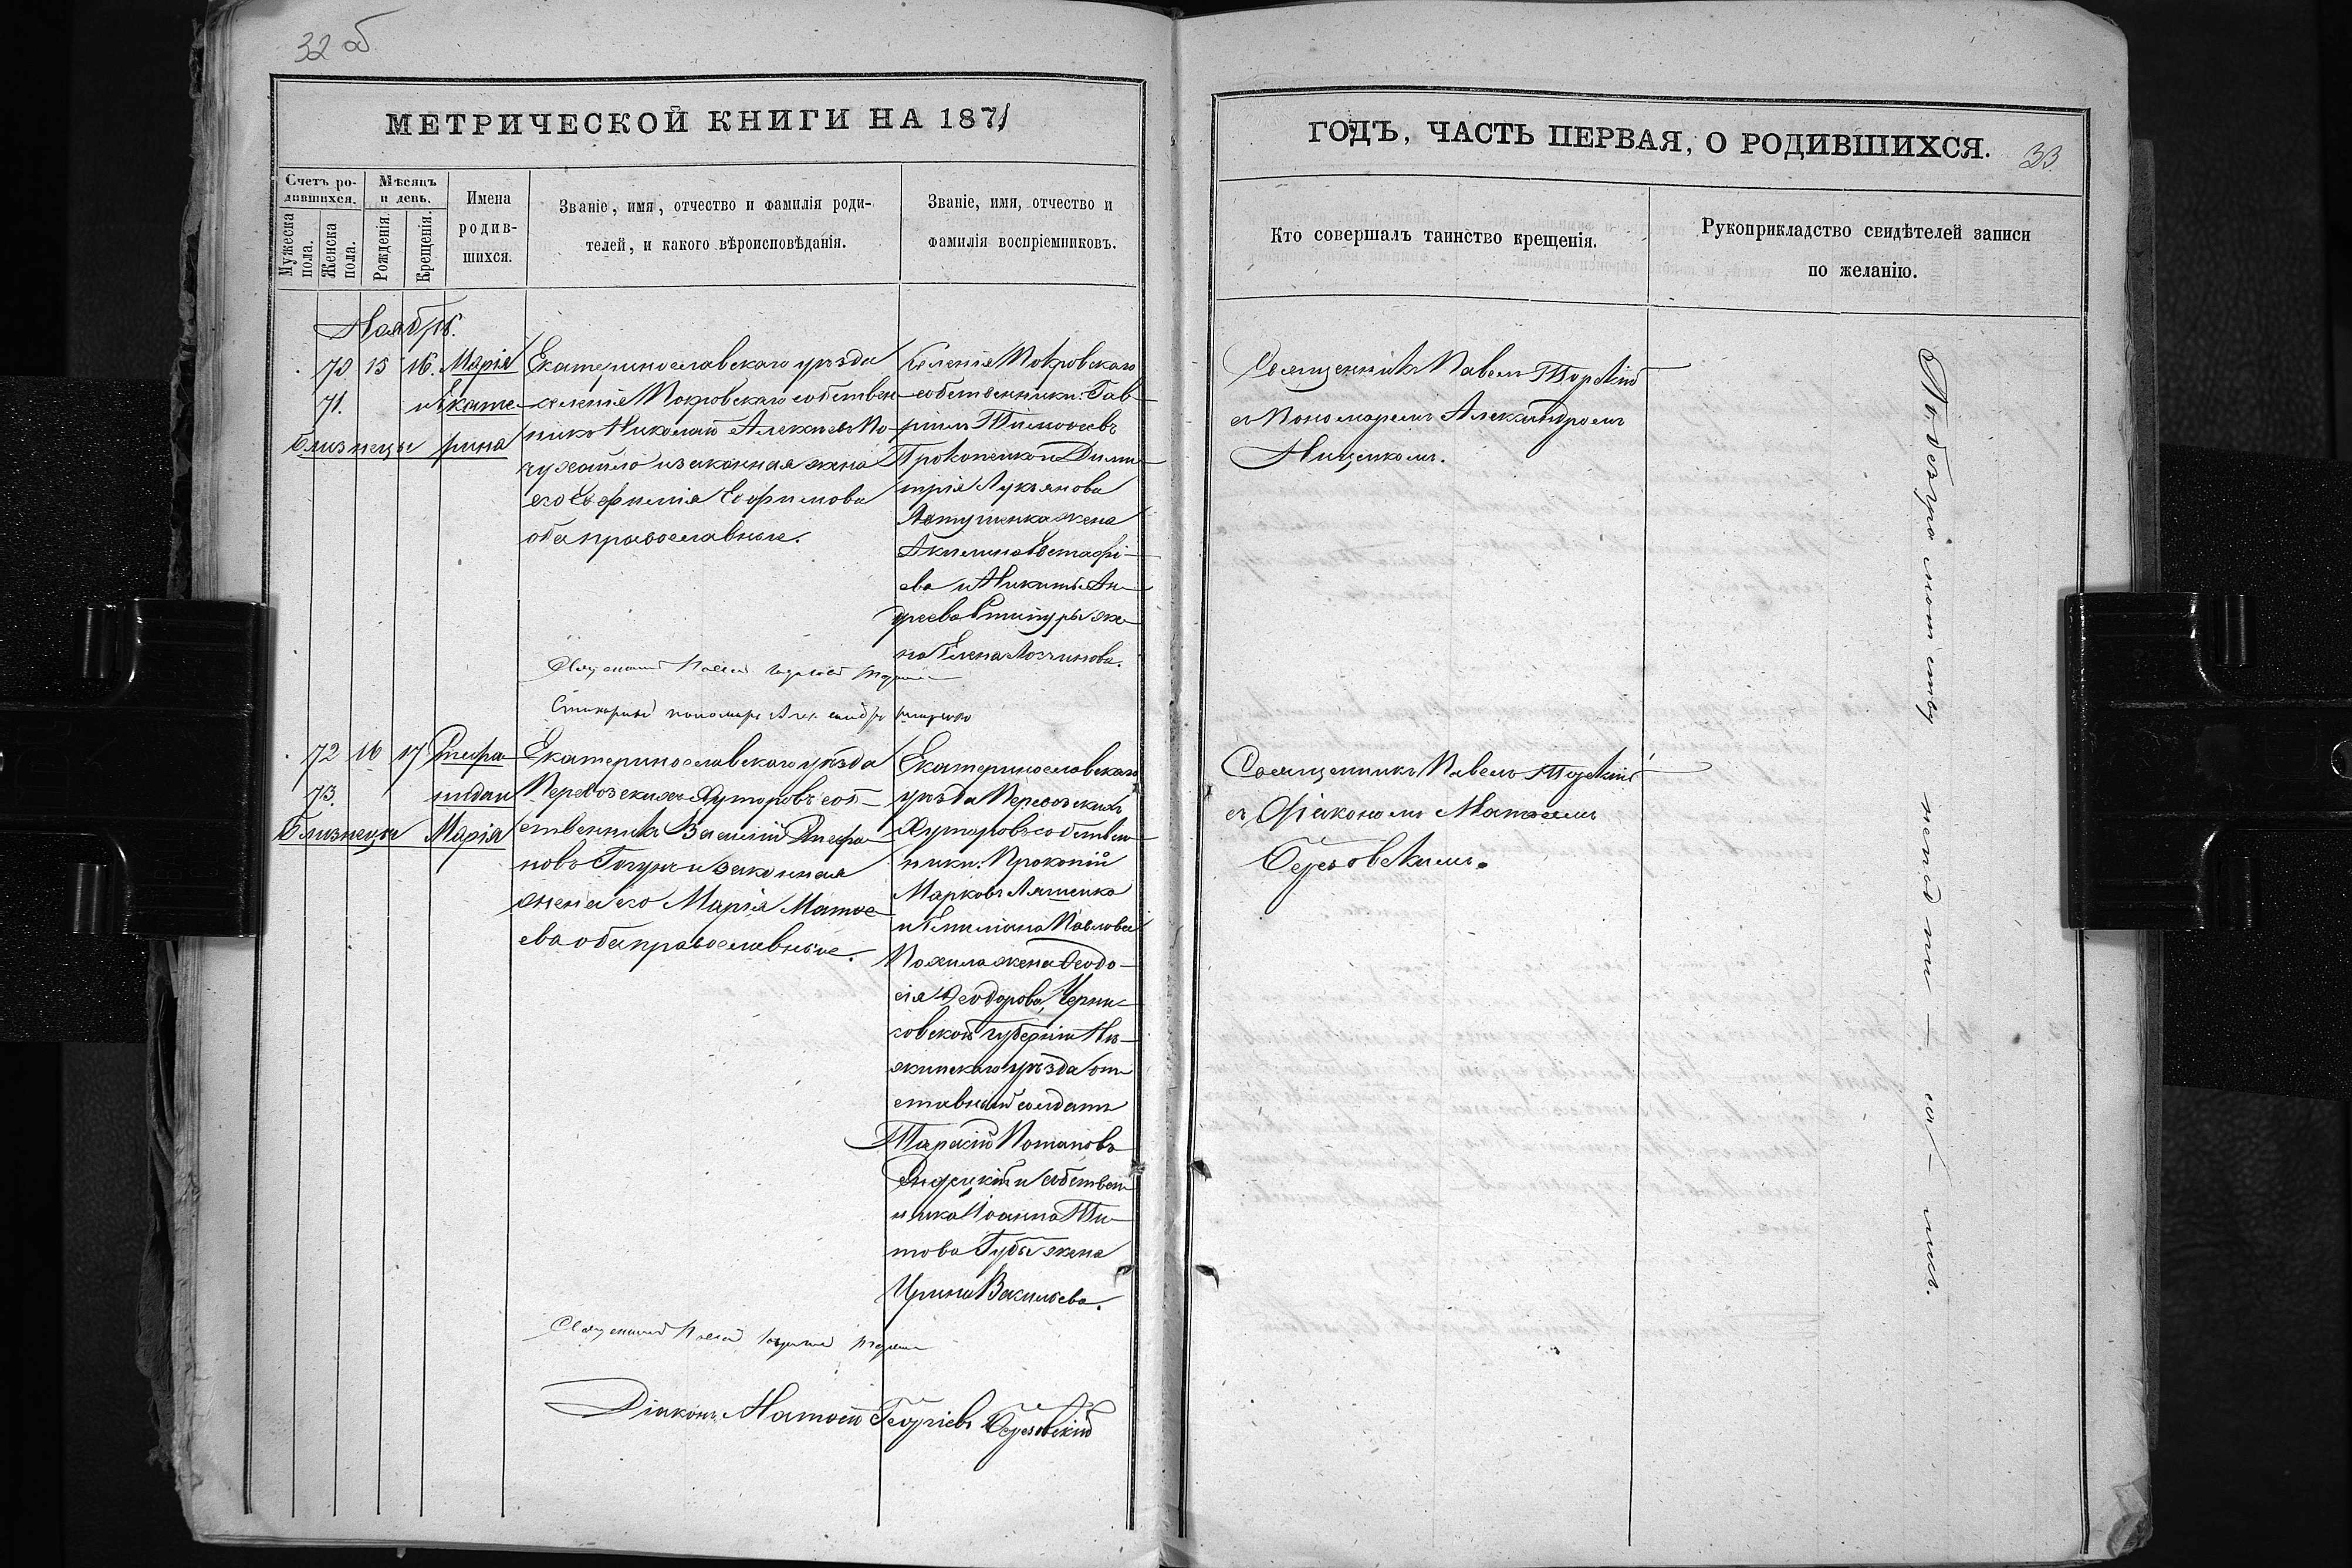 32 об
МЕТРИЧЕСКОЙ КНИГИ НА 1871
Счетъ ро-
дившихся.
Мужеска пола.
Женска пола.
Мѣсяцъ
и день.
Рожденія.
Крещенія.
Имена
родив-
шихся.
Званіе, имя, отчество и фамилія роди-
телей, и какого вѣроисповѣданія.
Званіе, имя, отчество и
фамилія воспріемниковъ.
Ноябрь.
70 15 16. Марія
71. и Екате-
близнецы рина
Екатеринославскаго уѣзда
селенія Покровскаго собствен-
никъ Николай Алексѣевъ
и законная жена
его Евфимія Евфимова
оба православные.
Селенія Покровскаго
собственники: Гав-
ріилъ Тимоѳеевъ
Прокопенко и Дими-
трія Лукьянова
Явтушенка жена
Акилина Евстафі-
ева и Никиты Ан-
дреева жe-
на Елена Логгинова.
Священникъ Павелъ
пономарь
72 16 17 Стефа-
73. нида и
Близнецы Марія
Екатеринославскаго уѣзда
Перевозскихъ Хуторовъ соб-
ственникъ Василій Стефа-
новъ и законная
жена его Марія Матѳе-
ева оба православные.
Екатеринославскаго
уѣзда Перевозскихъ
Хуторовъ собствен-
ники: Прокопій
Марковъ Ляшенко
и Емиліана Павлова
Похила жена Ѳеодо-
сія Ѳеодорова, Черни-
говской губерніи Нѣ-
жинскаго уѣзда от-
ставный солдатъ
Тарасій Потаповъ
и собствен-
ника Іоанна Ти-
това Губы жена
Ирина Васильева.
Священникъ Павелъ
Діаконъ Матѳей Георгіевъ Березовскій
ГОДЪ, ЧАСТЬ ПЕРВАЯ, О РОДИВШИХСЯ.
33
Кто совершалъ таинство крещенія.
Рукоприкладство свидѣтелей записи
по желанію.
Священникъ Павелъ Торскій
съ Пономаремъ Александромъ
Нищенкомъ.
Священникъ Павелъ Торскій
съ Діакономъ Матѳеемъ
Березовскимъ.
По безграмотству